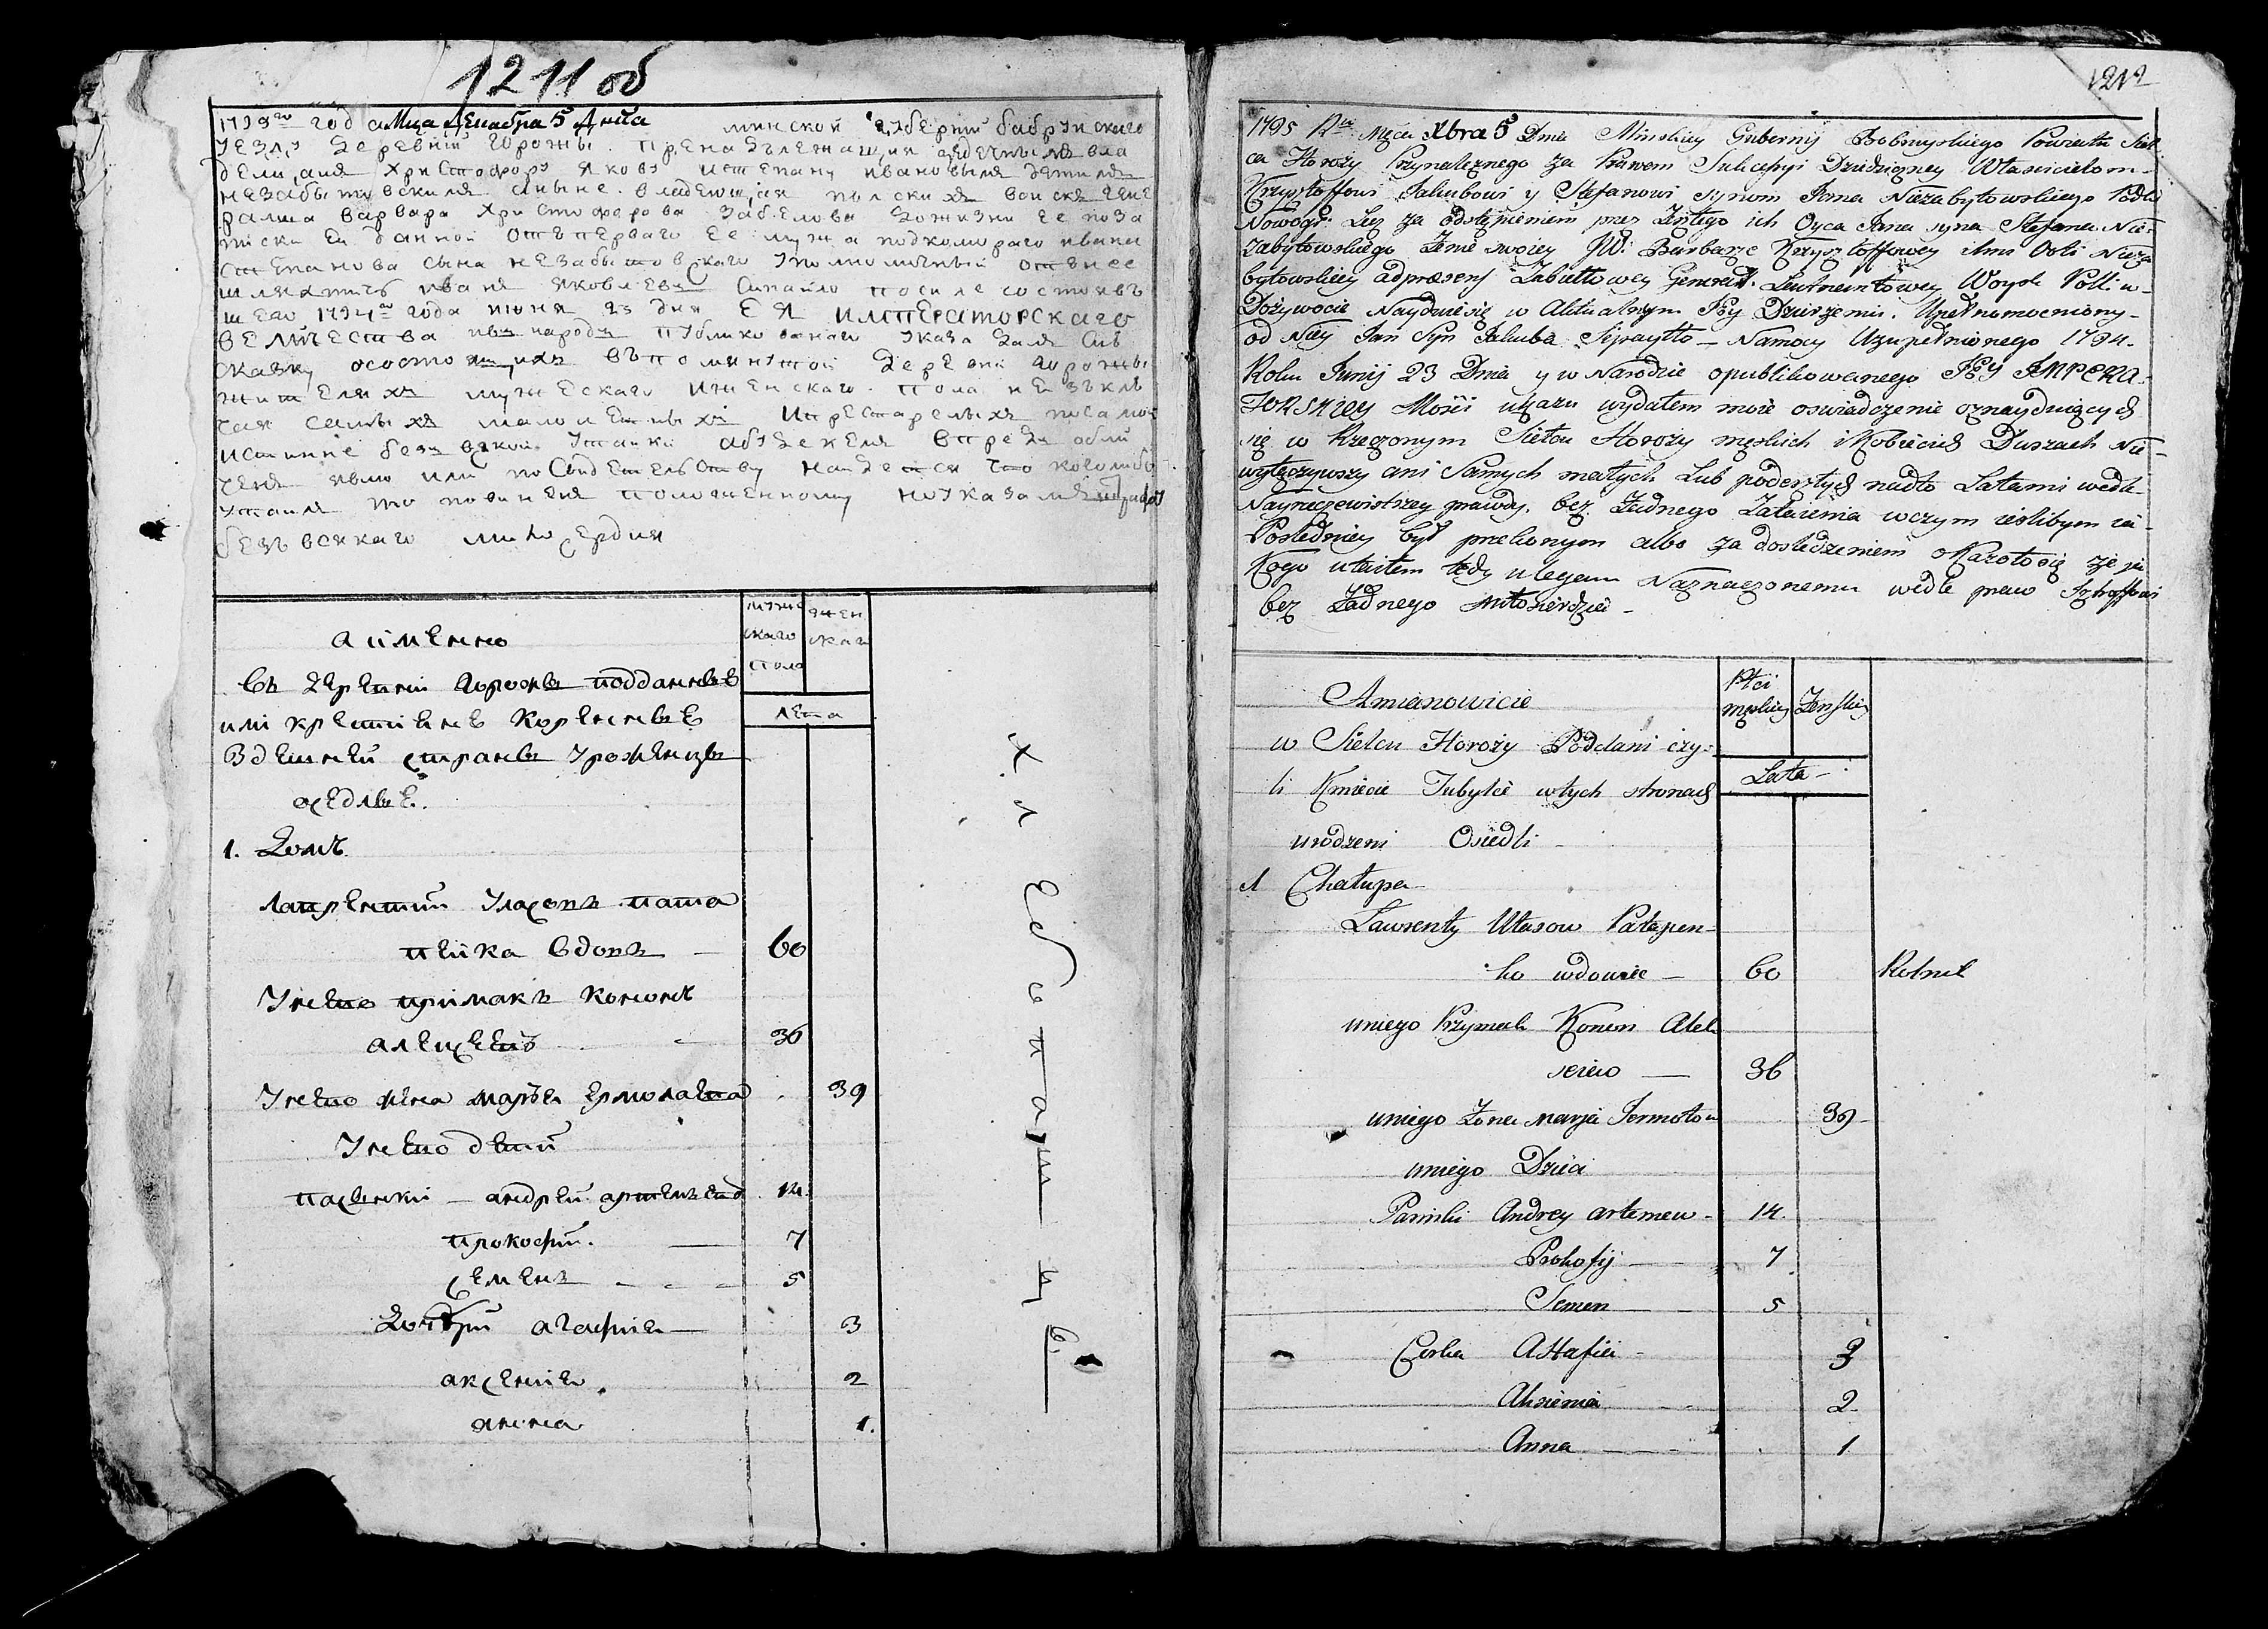 1211 об
1795го года Мца Декабря 5 Дня минской губернии бабруйскаго
уезду деревни Горожы. принадълежащия
Христофору Якову и Степану Ивановымя детимя
Незабытовскимя аныне. владеющия полскихя воискя гене
ралша варвара Христофорова забелова
данной отъ перваго ее мужа подкомораго ивана
степанова сына незабытовскаго отънее
шляхтичь иваня яковлевъ Сипайло после состоявъ
шегося 1794го года июня 23 дня ЕЯ ИМПЕРАТОРСКАГО
ВЕЛИЧЕСТВА народъ публикованаго указа
скаску осостоящихъ въпоминутой деревни Горожы
жителяхъ мужескаго ижЕнскаго пола неизъклю
чая самыхъ малолетныхъ ипрестарелыхъ посамой
истинне безъ всякой утайки впредъ обли
ченя явлю или по свидетельству найдется что коголибо
утаиля то повиненя положенному поуказамя штрафу
безъ всякаго милосердия
а именно
въ деревни Горожы подданные
или крестияне коренные
Здешней страны Уроженцы
оседлые.
1. Домъ
Лаврентий Уласовъ пата
пейка вдовъ — 60
Унево примакъ кононъ
алексеевъ 36
Унево жена марья Ермолаева 39
Унево дети
пасынки — андрей артемъевъ 14
прокофий. — 7
семенъ 5
дочери агафия — 3
аксения. 2
анна 1.
мужескаго
пола
женскаго
лета
хлебопашцы
1212
1795 Rku Mca Xbra 5 Dnia Minskiey Gubernij Bobruyskiego Powiatu Siel
ca Horoży Przynależnego za Prawem Sukcessyi Dziedziczney Właścicielom
Krzysztoffowi Jakubowi y Stefanowi synom Jana Niezabytowskiego Podko
Nowogr: Lecz za odstąpieniem przez Zeszłego ich Oyca Jana syna Stefana Nie
zabytowskiego Żenie swoiey JW: Barbarze Krzysztoffowey Nieza
bytowskiey adpræsens Zabiełłowey Generał Leutnentowey Woysk Polt w
Dożywocie Aktualnym Jey Dzierżeniu. Upełnomocniony
od Niey Jan Syn Jakuba Sipayłło — Namocy Uzupełnionego 1794
Roku Junij 23 Dnia y w Narodzie opublikowanego JEY IMPERA
TORSKIEY Mości ukazu wydałem moie oswiadczenie oznayduiących
się w Rzeczonym Sielcu Horoży męskich i Kobiecich Duszach Nie
wyłączywszy ani Samych małych Lub podeszłych nadto Latami wedle
Nayrzeczewistszey prawdy. bez Żadnego Zataienia wczym ieslibym za
Posledniey był przekonym albo za dosledzeniem okazałosię że ja
Kogo utaiłem tedy ulegam Naznaczonemu wedle praw Sztraffowi
bez Żadnego miłosierdzia
Amianowicie
w Sielcu Horoży Poddani czy
li Kmiecie Tubylcé wtych stronach
urodzeni Osiedli
1 Chałupa
Lawrenty Ułasow Patapen
ko wdowiec — 60 Rolnik
uniego Przymak Konon Alek
seiew — 36
uniego Żona Marja Jermołow 39
uniego Dzieci
Pasinki Andrey artemew 14.
Prokofij — 7
Semen — 5
Corka AHafia 3
Aksienia 2
Anna 1
Płci
męskiey Żenskiey
Lata